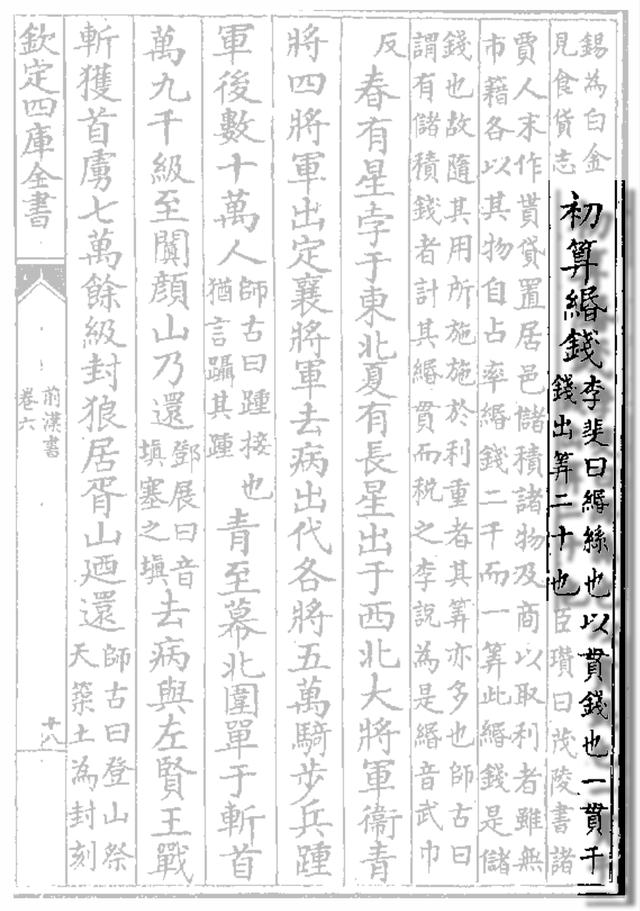 錫為白金
見食貨志
初算緡錢
李斐曰緡絲也以貫錢也一貫千
錢出筭二十也臣瓚曰茂陵書諸
賈人末作貰貸置居邑儲積諸物及商以取利者雖無
市籍各以其物自占率緡錢二千而一筭此緡錢是儲
錢也故隨其用所施施於利重者其筭亦多也師古曰
謂有儲積錢者計其緡貫而稅之李說為是緡音武巾
反
春有星孛于東北夏有長星出于西北大將軍衛青
將四將軍出定襄將軍去病出代各將五萬騎步兵踵
軍後數十萬人
師古曰踵接也
猶言躡其踵
青至幕北圍單于斬首
萬九千級至闐顏山乃還
鄧展曰音
塡塞之塡
去病與左賢王戰
斬獲首虜七萬餘級封狼居胥山廼還
師古曰登山祭
天築土為封刻
欽定四庫全書
前漢書
卷六
十八